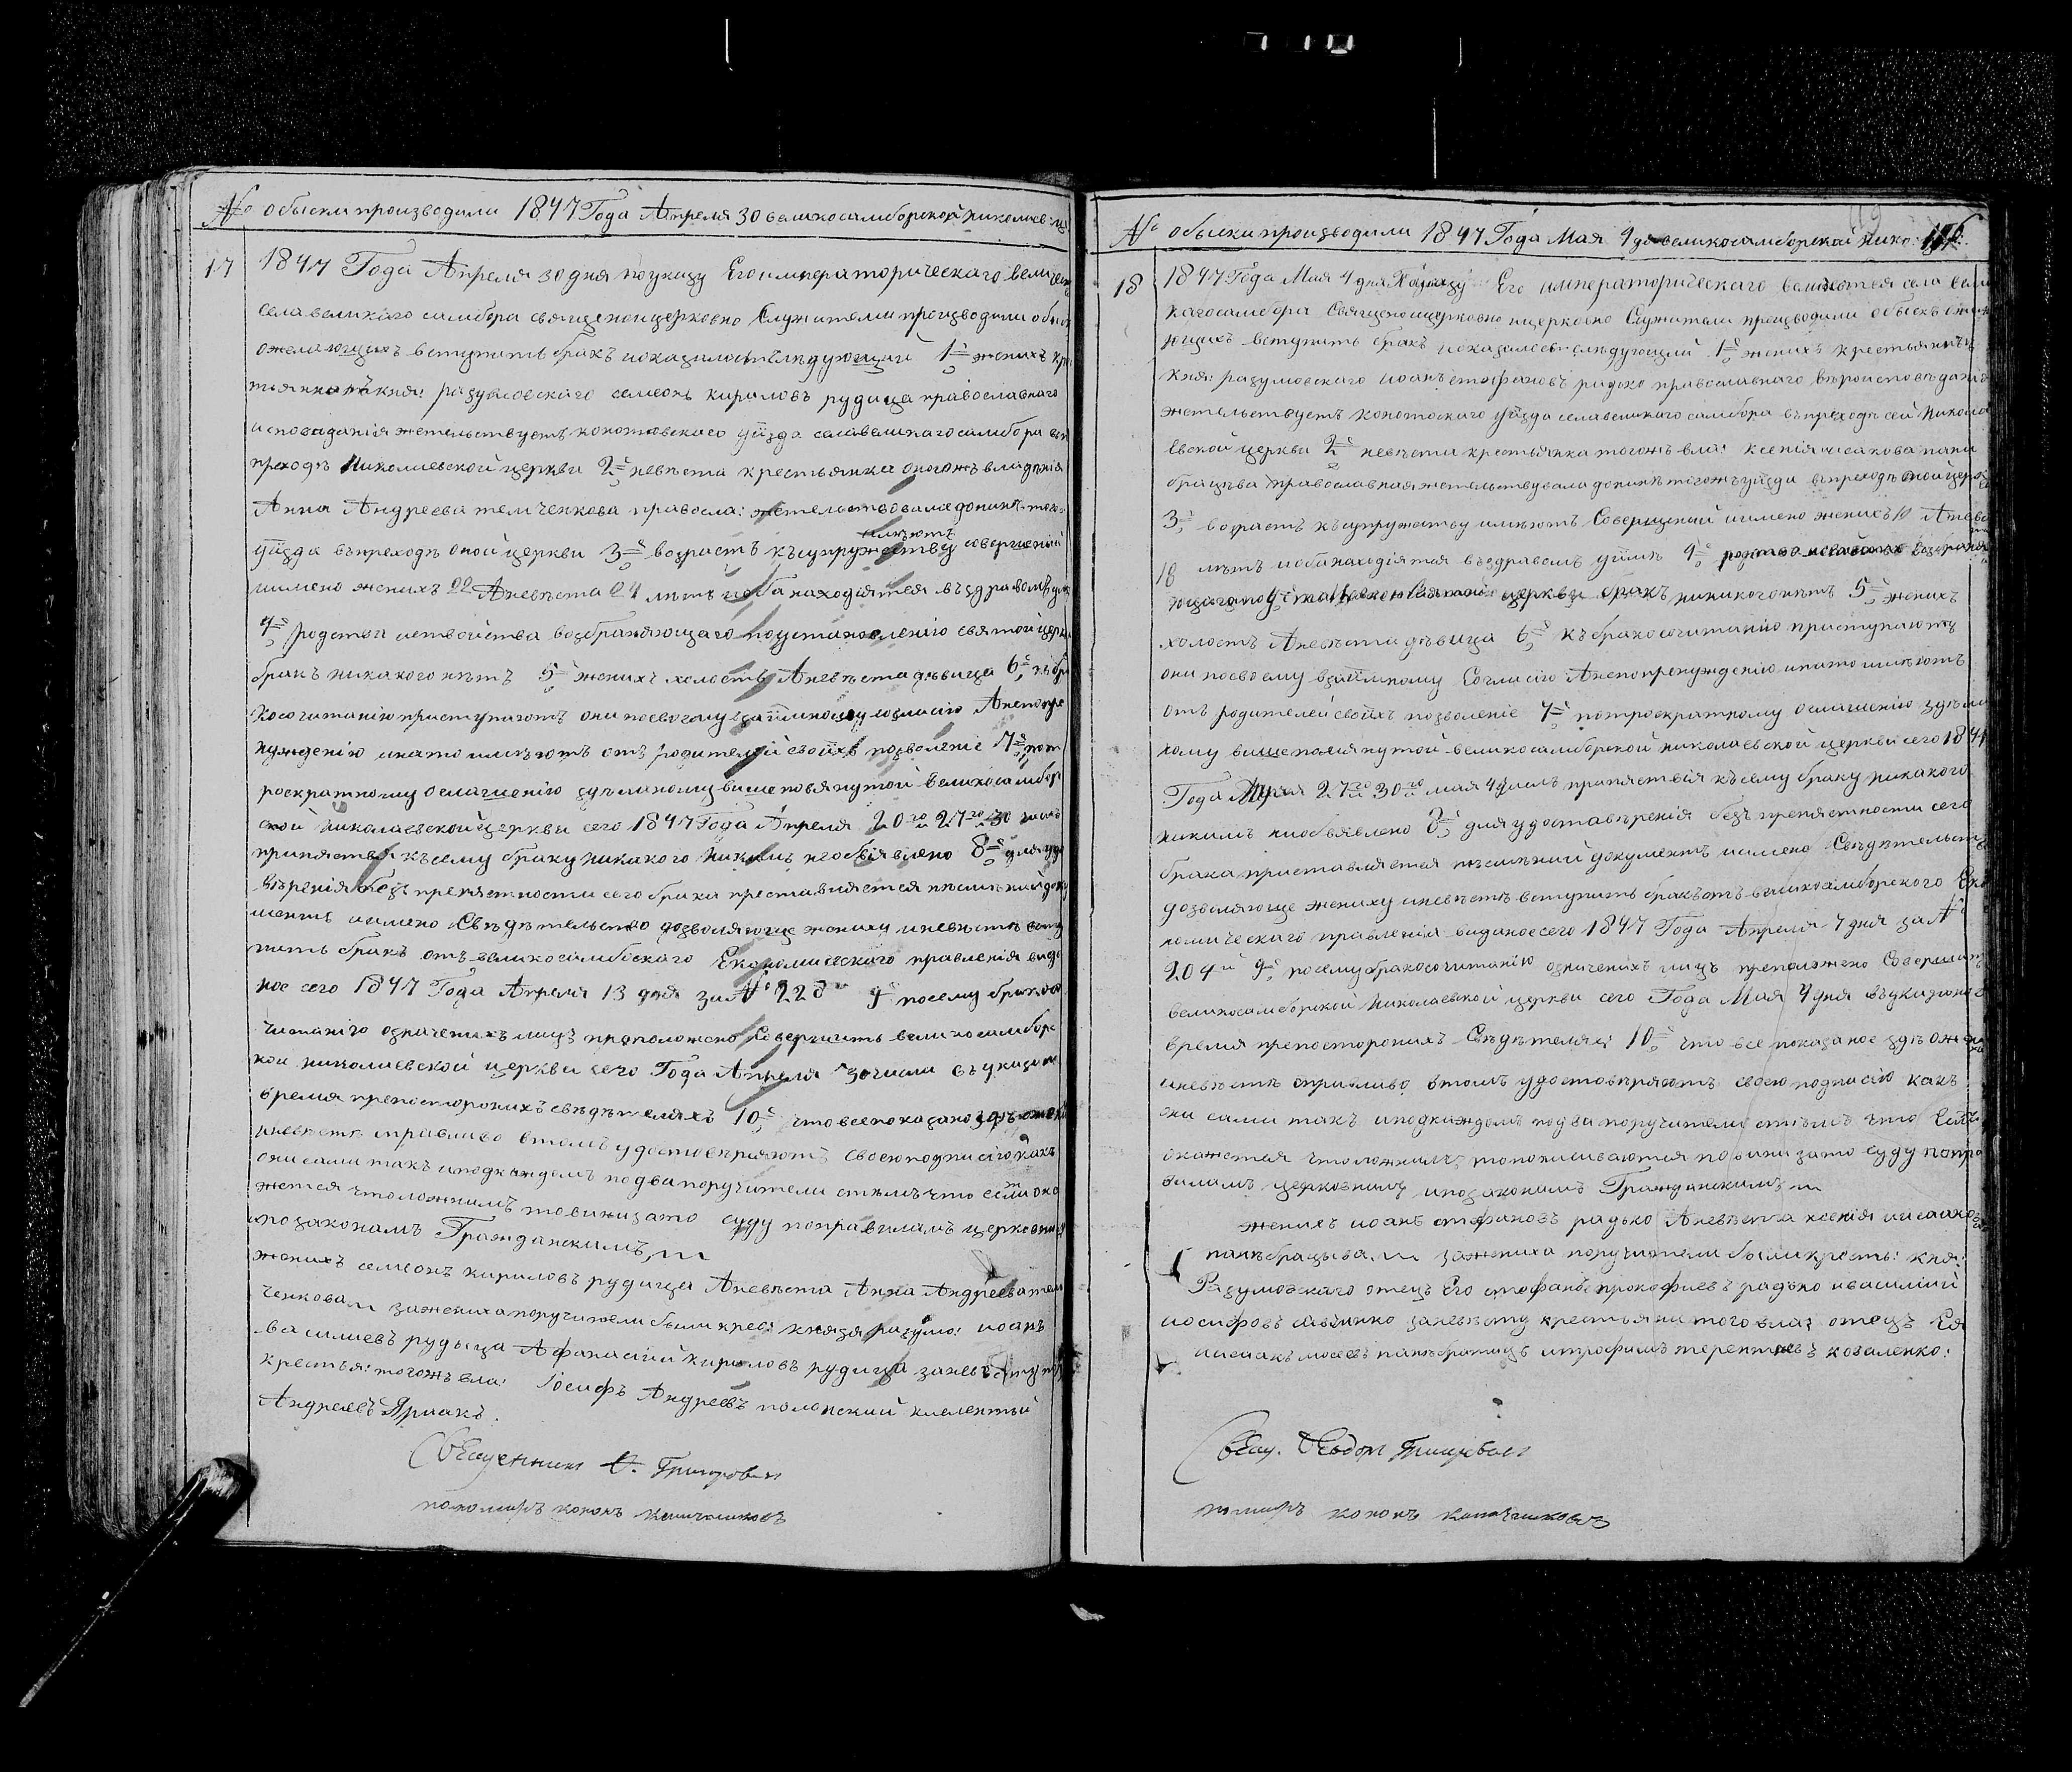 № обыски производили 1847 Года Апреля 30 великосамборской николаев:
17
1847 Года Апреля 30 дня по указу Его императорическаго величест
села великого самбора священоицерковно служители производили обыс
ожелающихъ вступить бракъ иоказалось следующии 1е женихъ кре
тьянинъ кня: разумовскаго семеонъ кириловъ рудица православнаго
исповаданія жетельствуетъ конотовскаго уїзда села великаго самбора въ
преходѣ николаевской церкви 2е невѣста крестьянка оногожъ владѣнія
Анна Андреева темченкова правосла: жетельствовала донинѣ того
имѣютъ
уїзда въпреходѣ оной церкви 3е возрастъ къ супружеству совершеный
иимено женихъ 22 Аневѣста 24 лѣтъ иоба находіятея въздравомъ
4е родства исвойства возбраняющаго поустановленію святой церк
бракъ никакого нѣтъ 5е женихъ холостъ Аневѣста дѣвица 6е къ бра
косочитанію приступаютъ они посвоему взаїмному согласію Анепопре
нужденію инато имѣютъ отъ родителей своїхъ позволеніе 7е пот
роекратному оглашенію здѣланому вишепомянутой великосамбор
ской николаевской церкви сего 1847 Года Апреля 20го 27го и 30 числъ
припятствія къ сему браку никакого никимъ необъявлено 8е для удо
вѣренія безъ препятности сего брака преставляется письмений доку
ментъ иимено Свѣдѣтельство дозволяюще жениху иневѣстѣ всту
пить бракъ отъ великосамбоскаго Економическаго правленія видa
ное сего 1847 Года Апреля 13 дня за № 228 9е посему бракосо
читанію означенихъ лицъ преположено совершить великосамборс
кой николаевской церкви сего Года Апреля 30 числа въ указоне
время препосторонихъ свѣдѣтеляхъ 10е что все показано здѣ ожени
иневѣстѣ справливо втомъ удостовѣряютъ своею подписію какъ
они сами такъ иподкаждомъ подва поручители стѣмъ что если ока
жется что ложнимъ товини зато суду поправиламъ церковнимъ
ипозаконамъ Гражданскимъ
женихъ семеонъ кириловъ рудица Аневѣста Анна Андреева тем
ченкова зажениха поручители были крес: князя разумо: иоанъ
василиевъ рудыца Афанасій кириловъ рудица заневѣсту
крестья: тогожъ вла: Іосифъ Андреевъ полонский климентий
Андреевъ Ярмакъ.
Священникъ Ѳ. Григоровичъ
пономаръ кононъ
№ обыски производили 1847 Года Мая 4 дня великосамборской нико:
18
1847 Года Мая 4 дня По указу Его императорическаго величества села вели
кагосамбора Священоицерковно ицерковно Служители производили обыскъ ожела
ющихъ вступить бракъ иоказалось слѣдующий 1е женихъ крестьянинъ
кня: разумовского иоанъ стефановъ радько православнаго вѣроисповѣданія
жетельствуетъ конотоского уїзда села великаго самбора въпреходѣ сей никола
евской церкви 2е невѣста крестьянка тогожъ вла: ксенія исакова панѣ
брацѣва православная жетельствувала донинѣ тогожъ уїзда въпреходѣ оной церкв
3е возрастъ къ супружеству имѣютъ Совершений иимено женихъ 19 Аневѣс
18 лѣтъ иоба находіятея въздравомъ уїмѣ 4е возбраня
ющаго поустановленію Святой церкви бракъ никакого нѣтъ 5е женихъ
холостъ Аневѣста дѣвица 6е къ бракосочитанію приступаютъ
они посвоему взаїмному Согласію Анепопренужденію инато имѣютъ
отъ родителей своїхъ позволеніе 7е потроекратному оглашенію здѣла
ному вишепомянутой великосамборской николаевской церкви сего 1847
Года Апреля 27го и 30го мая 4 числъ припятствія къ сему браку никакого
никимъ необъявлено 8е для удоставѣренія безъ препятности сего
брака приставляется письмений документъ иимено Свѣдѣтельств
дозволяюще жениху иневѣстѣ вступить бракъ отъ великосамборского Еко
номическаго правленія виданое сего 1847 Года Апреля 7 дня за №
204й 9е посему бракосочитанію означенихъ лицъ преположено Совершит
великосамборской николаевской церкви сего Года Мая 4 дня въ указоное
время препосторонихъ Свѣдѣтеляхъ 10е что все показаное здѣ ожени
иневѣстѣ справливо втомъ удостовѣряютъ своею подписію какъ
они сами такъ иподкаждомъ подва поручители стѣмъ что Если
окажется что ложнимъ то подписиваются повини зато суду попра
виламъ церковнимъ ипозаконамъ Гражданскимъ
женихъ иоанъ стефановъ радько Аневѣста ксенія исаако
панѣбрацыва зажениха поручители были кресть: кня:
Разумовскаго отецъ Его стефанъ прокофиевъ радько ивасилий
иосифовъ савѣнко заневѣсту крестьяни того вла: отецъ Ея
исаакъ мосеевъ панѣбратецъ итрофимъ терентіевъ коваленко:
Свящ. Ѳеодоръ Григоровичъ
помаръ кононъ